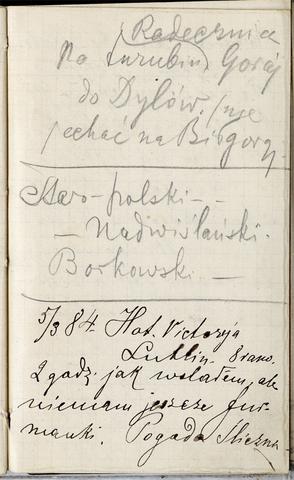 (Radecznica
Na Turobin, Goraj
do Dylów. (nie
jechać na Biłgoraj.
Staro-polski -
- Nadwiślański.
Borkowski -
5/3 84. Hot. Victorja
Lublin. 8 rano.
2 godz: jak wstałem, ale
niemam jeszcze fur-
manki. Pogoda śliczna